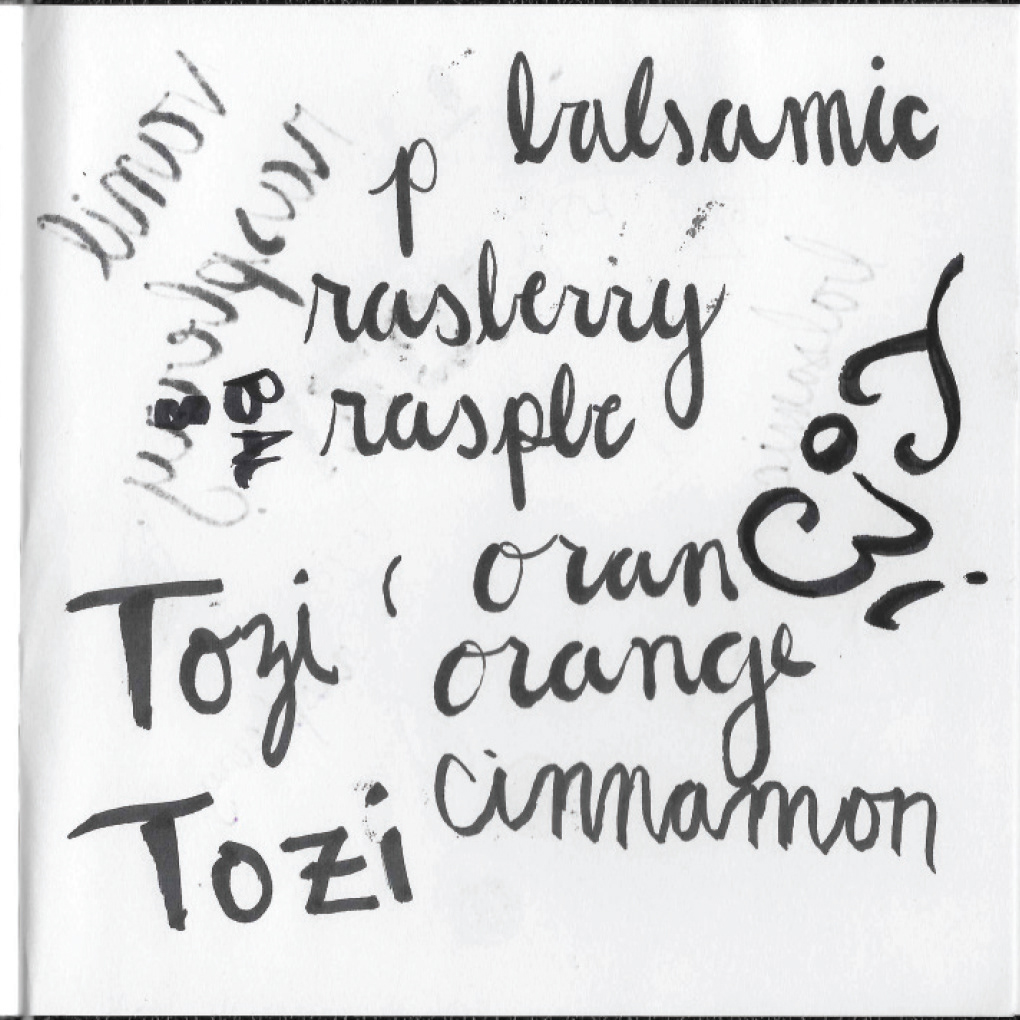 balsamic
p
rasberry
raspbe
B
BM
Tozi
oran
orange
Tozi
cinnamon
Tozi